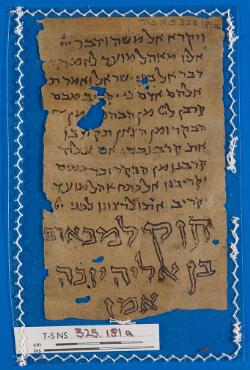 T-S N.S 325 181a
ויקרא אל משה וידבר יי
אליו מאהל מועד לאמר
דבר אל בני ישראל ואמרת
אלהם אדם כי יקריב מכם
קרבן ליי מן הבהמה מן
הבקר ומן הצאן תקריבו
את קרבנכם אם עולה
קרבנו מן הבקר זכר תמים
יקריבנו אל פתח אהל מועד
יקריב אתו לרצונו לפני יי
חזק
בן אליה יונה
אמן
T-S NS 325.181a
cm
ins